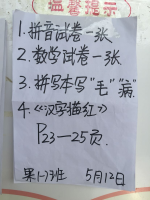 温馨提示
1.拼音试卷一张
2.数学试卷一张
3.拼写本写"毛""病"
4.《汉字描红》
P23—25页.
5月12日